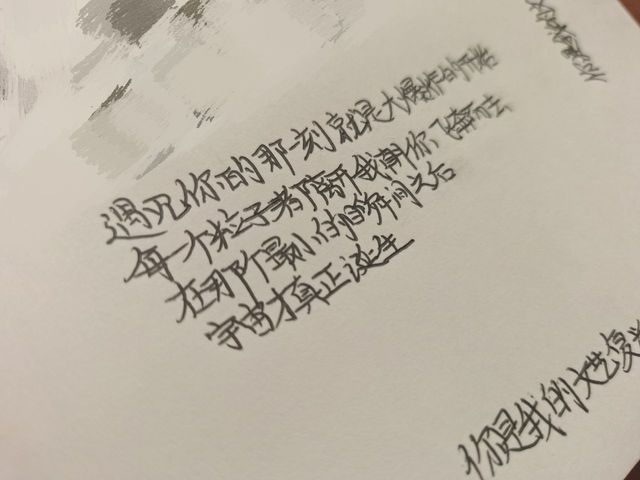 遇见你的那一刻就是大爆炸的开始
每一个粒子都离开我朝你飞奔而去
在那个最小的瞬间之后
宇宙才真正诞生
你是我的文艺复